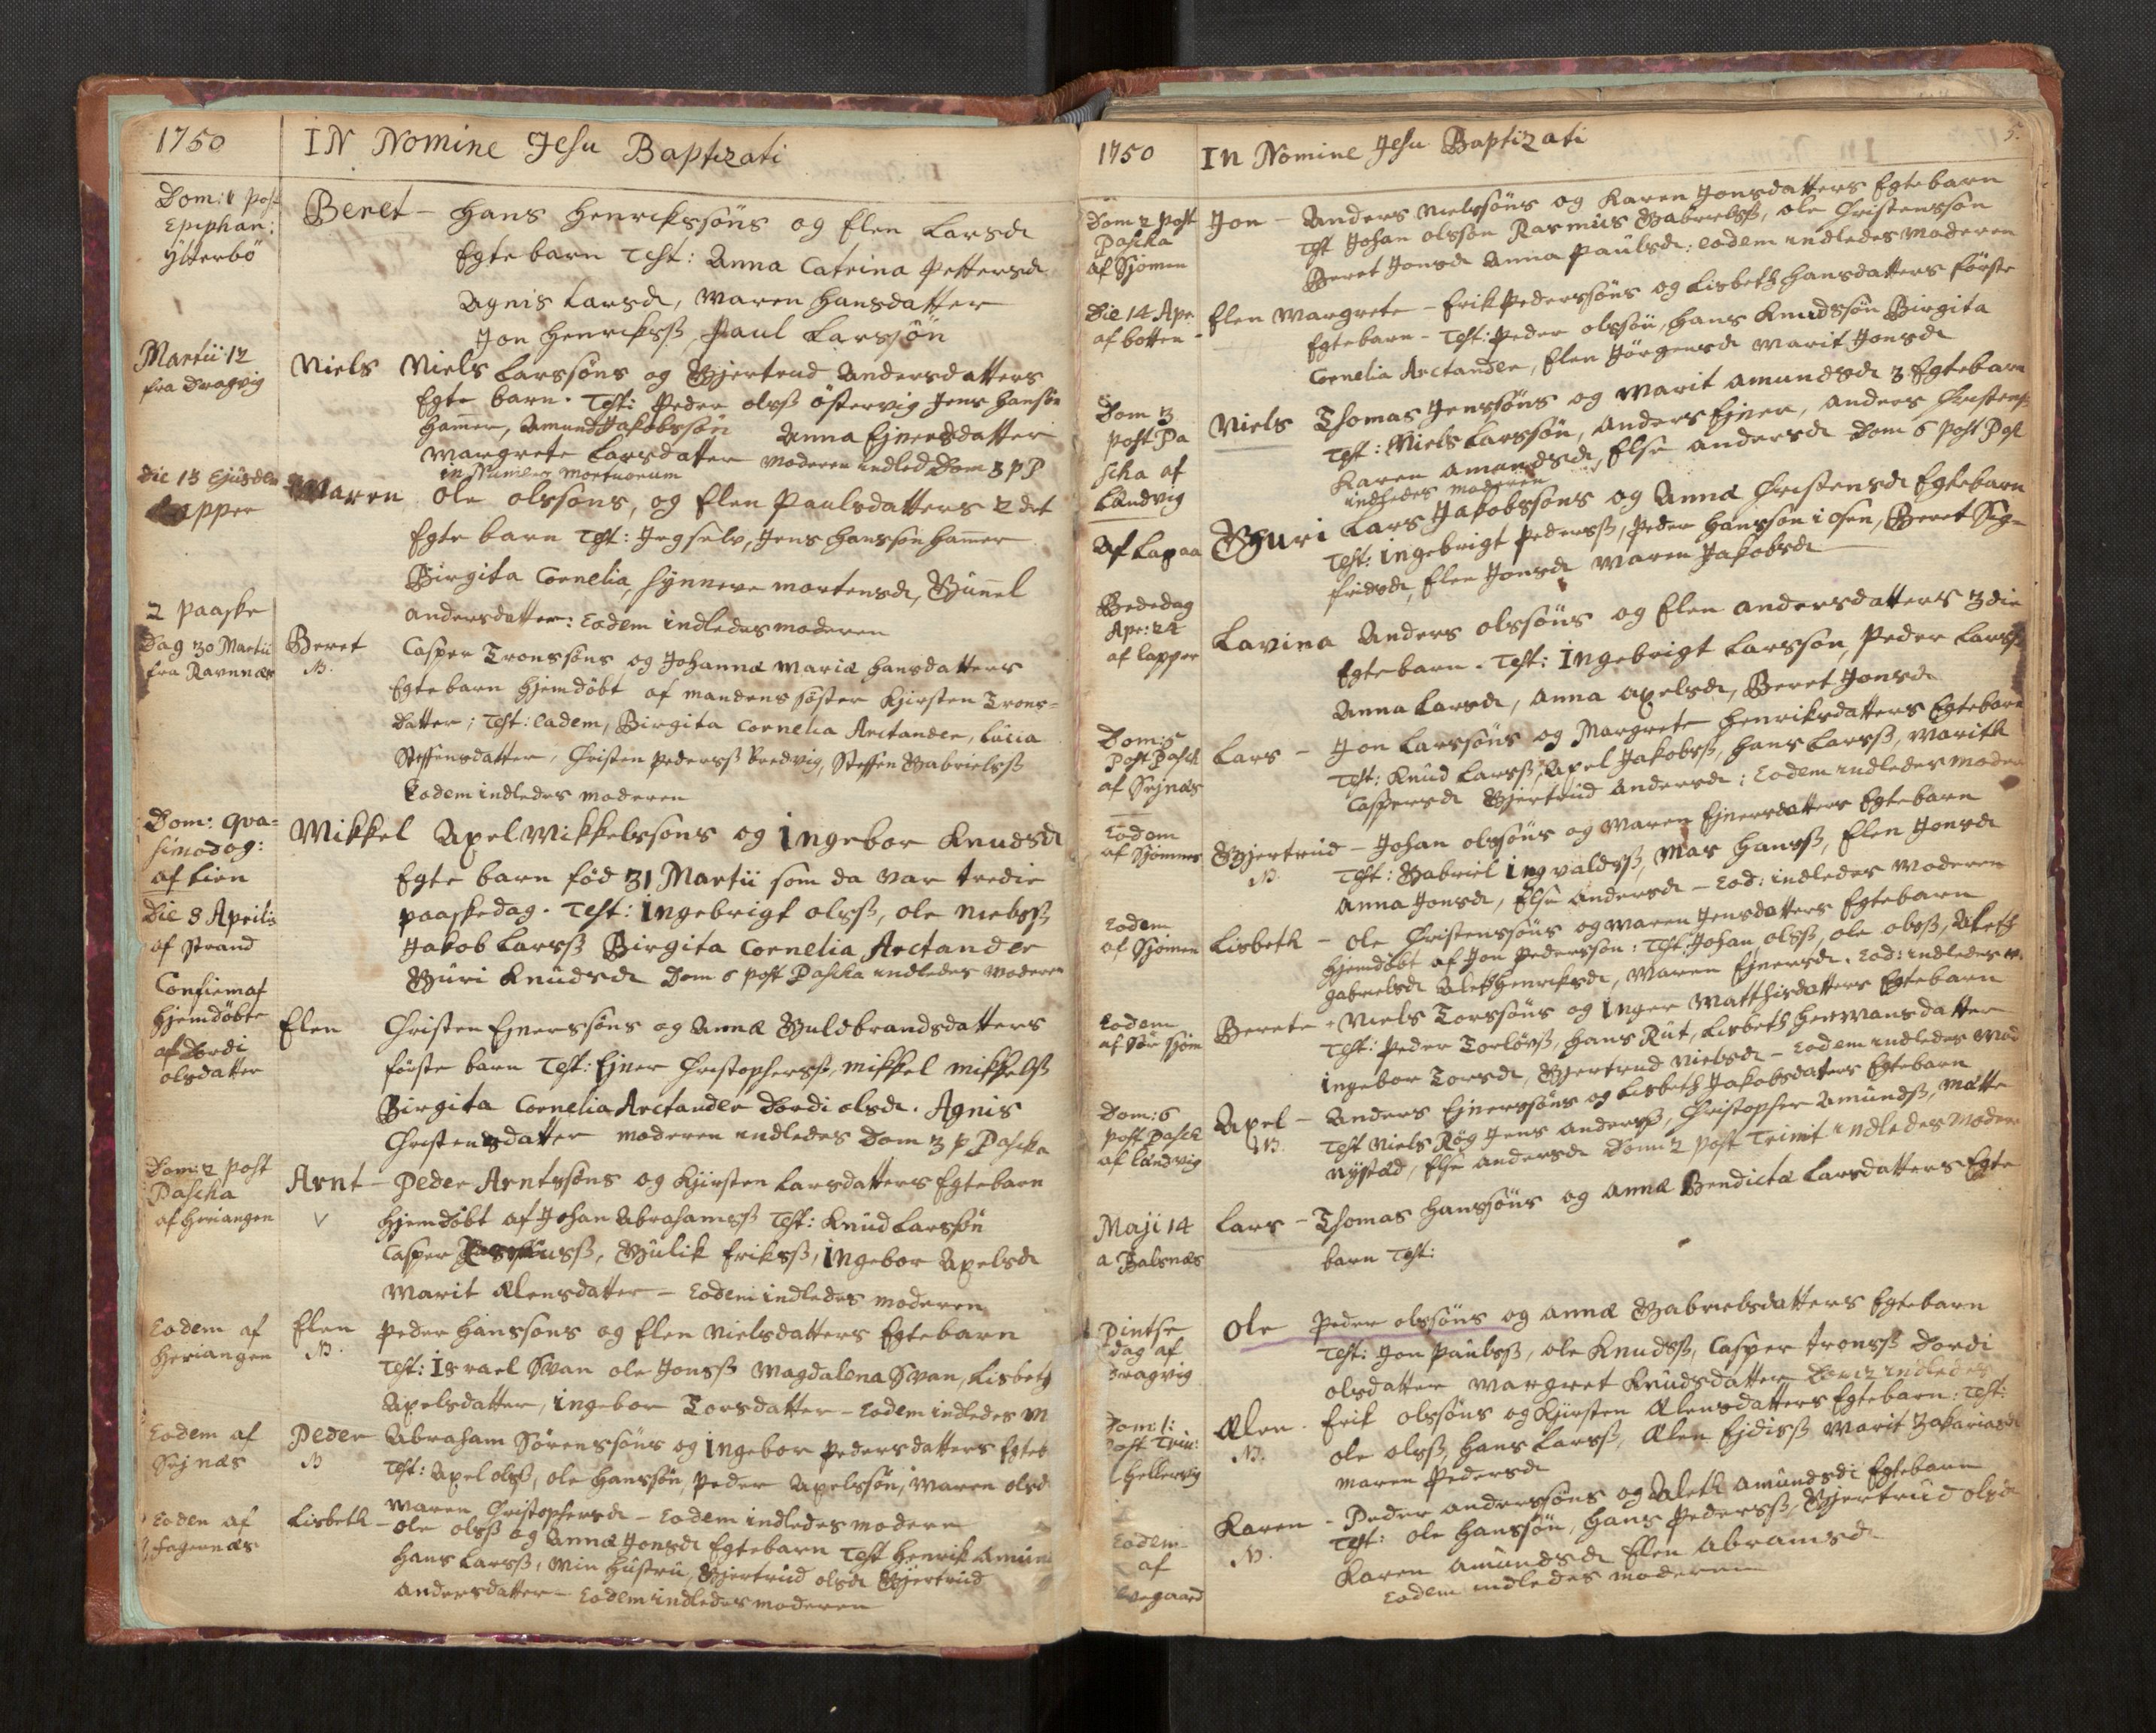 1750
IN Nomine Jesu Baptizati
Dom: 1 post
Epiphan:
Ytterbö
Beret - Hans Henrikssöns og Elen Larsd
Egte barn Test: Anna Catrina Pettersd
Agnis Larsd, Maren Hansdatter
Jon Henrikss, Paul Larssön
Martii 12
fra Dragvig
Niels Niels Larssöns og Gjertrud Andersdatters
Egte barn. Test: Peder olss östervig Jens Hansön
Hamer, Amund Jakobssön Anna Ejnersdatter
Margrete Larsdatter Moderen indled Dom 3 p P
in Numero mortuorum
Die 13 Ejusdem
Lapper
Maren Ole olssons, og Elen Paulsdatters 2 det
Egte barn Test: Jegselv, Jens Hansson Hamer
Birgita Cornelia, Synneve Mortensd, Gunnel
Andersdatter: Eodem indledes moderen
2 Paaske
Dag 30 Martii
fra Ravnnæs
Beret
N.
Casper Tronssöns og Johannæ Mariæ Hansdatters
Egte barn hjemdöbt af mandens söster Kjirsten Trons=
datter; Test: Eadem, Birgita Cornelia Arctander, Lucia
Steffensdatter, Christen Pederss Bredvig, Steffen Gabrielss
Eodem indledes moderen
Dom: Qva=
simodog:
af Lien
Mikkel Axel Mikkelssons og Ingebor Knudsd
Egte barn föd 31 Martii som da var tredie
paaskedag. Test: Ingebrigt olss, ole Nielss
Jakob Larss Birgita Cornelia Arctander
Guri Knudsd Dom 6 post Pascha indledes Moderen
Die 8 Aprilis
af Strand
Confirmat
hjemdöbte
af Dordi
olsdatter
Elen Christen Ejnerssöns og Annæ Guldbrandsdatters
förste barn Test: Ejner Christopherss, Mikkel Mikkelss
Birgita Cornelia Arctander Dordi olsd. Agnis
Christensdatter moderen indledes Dom 3 p Pascha
Dom: 2 post
Pascha
af Heriangen
Arnt - Peder Arntssöns og Kjirsten Larsdatters Egtebarn
hjemdöbt af Johan Abrahamss Test: Knud Larssön
Casper Rasmuss, Gulik Erikss, Ingebor Axelsd
Marit Alensdatter - Eodem indledes moderen
Eodem af
Heriangen
Elen
N.
Peder Hanssons og Elen Nielsdatters Egtebarn
Test: Israel Svan ole Jonss Magdalena Svan, Lisbeth
Axelsdatter, Ingebor Torsdatter - Eodem indledes M
Eodem af
Sejnæs
Peder
N
Abraham Sörenssöns og Ingebor Pedersdatters Egteb
Test: Axel olss, ole Hanssön, Peder Axelssön, Maren olsd
Maren Christophersd - Eodem indledes modern
Eoden af
Fagernæs
Lisbeth - ole olss og Annæ Jonsd Egtebarn Test Henrik Amun
Hans Larss, Min Hustru, Gjertrud olsd Gjertrud
Andersdatter - Eodem indledes moderen
1750
IN Nomine Jesu Baptizati
5.
Dom 2 Post
Pascha
af Sjömen
Jon - Anders Nielssöns og Karen Jonsdatters Egtebarn
Test Johan olsson Rasmus Gabrielss, ole Christenssön
Beret Jonsd Anna Paulsd: eodem indledes Moderen
Die 14 Apr
af botten
Elen Margrete - Erik Pederssöns og Lisbeth Hansdatters förste
Egtebarn - Test: Peder olssön, Hans Knudssön Birgita
Cornelia Arctander, Elen Jörgensd Marit Jonsd
Dom 3
post Pa
scha af
Landvig
Niels Thomas Jenssöns og Marit Amundsd 3 Egtebarn
Test: Niels Larssön, Anders Ejner, Anders Christenss
Karen Amundsd, Else Andersd Dom 6 post Pas
indledes moderen
Af Lapaa
Guri Lars Jakobssöns og Annæ Christensd Egtebarn
Test: Ingebrigt Pederss, Peder Hansson i osen, Beret Sig=
fridsd, Elen Jonsd Maren Jakobsd
Bededag
Apr: 24
af lapper
Lavina Anders olssöns og Elen Andersdatters 3die
Egtebarn. Test: Ingebrigt Larsson, Peder Larss
Anna Larsd, Anna Axelsd, Beret Jonsd
Dom: 5
Post Pasch
af Sejnæs
Lars - Jon Larssöns og Margrete Henriksdatters Egtebarn
Test: Knud Larss, Axel Jakobss, Hans Larss, Marith
Caspersd Gjertrud Andersd; Eodem indledes Moder
Eodem
af Sjömnes
Gjertrud - Johan olssöns og Maren Ejnersdatters Egtebarn
N.
Test: Gabriel Ingvaldss, Mas Hanss, Elen Jonsd
Anna Jonsd, Else Andersd - Eod: indledes Moderen
Eodem
af Sjömen
Lisbeth - ole Christenssöns og Maren Jensdatters Egtebarn
hjemdöbt af Jon Pedersson: Test: Johan olss, ole olss, Aleth
Gabrielsd Aleth Henriksd, Maren Ejnersd. Eod: indledes m.
Eodem
af Sör Sjöm
Berete - Niels Torssöns og Inger Matthisdatters Egtebarn
Test: Peder Torlövss, Hans Rut, Lisbeth Hermansdatter
Ingebor Torsd, Gjertrud Nielsd - Eodem indledes Mod
Dom: 6
post Pasch
af landvig
Axel -
N.
Anders Ejnerssöns og Lisbeth Jakobsdatters Egtebarn
Test Niels Rög Jens Anderss, Christopher Amundss, Matte
Nystad, Else Andersd Dom: 2 post Trinit indledes Moder
Maji 14
a Balsnæs
Lars - Thomas Hanssöns og Annæ Bendictæ Larsdatters Egte
barn Test:
Pintse
dag af
Dragvig
Ole Peder olssöns og Annæ Gabrielsdatters Egtebarn
Test: Jon Paulss, ole Knudss, Casper Tronss Dordi
olsdatter Margret Knudsdatter indledes
Dom 1:
Post Trin:
Hellervig
Alen.
N.
Erik olssöns og Kjirsten Alensdatters Egtebarn: Test:
ole olss, Hans Larss, Alen Ejdiss Marit Zakariasd
Maren Pedersd
Eodem
af
Karen -
N.
Peder Anderssöns og Aleth Amundsd Egtebarn
Test: ole Hanssön, Hans Pederss, Gjertrud olsd
Karen Amundsd Elen Abramsd
Eodem indledes moderen